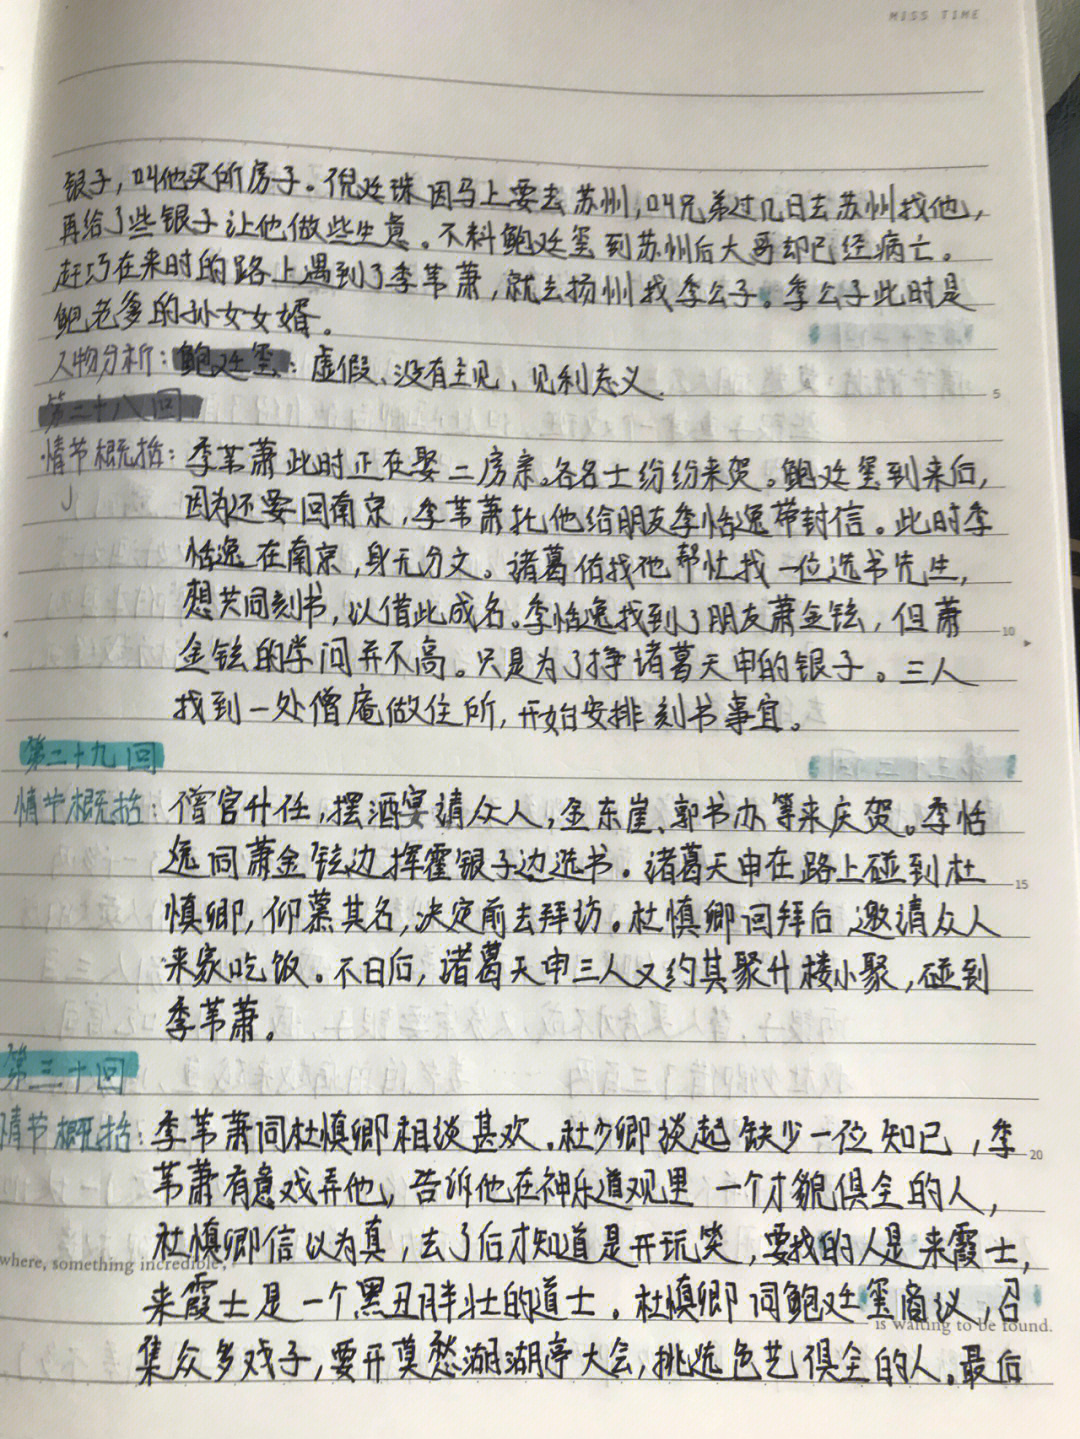 MISS TIME
银子，叫他买所房子。倪廷珠因马上要去苏州，叫兄弟过几日去苏州找他，
再给了些银子让他做些生意。不料鲍廷玺到苏州后大哥却已经病亡。
赶巧在来时的路上遇到了季苇萧，就去扬州找季公子。季公子此时是
鲍老爹的孙女女婿。
人物分析：鲍廷玺：虚假、没有主见、见利忘义
5
第二十八回
情节概括：季苇萧此时正在娶二房亲。各名士纷纷来贺。鲍廷玺到来后，
因为还要回南京，季苇萧托他给朋友季恬逸带封信。此时季
恬逸在南京，身无分文。诸葛佑找他帮忙找一位选书先生，
想共同刻书，以借此成名。季恬逸找到了朋友萧金铉，但萧
10
金铉的学问并不高。只是为了挣诸葛天申的银子。三人
找到一处僧庵做住所，开始安排刻书事宜。
第二十九回
情节概括：僧官升任，摆酒宴请众人，金东崖、郭书办等来庆贺。季恬
逸同萧金铉边挥霍银子边选书。诸葛天申在路上碰到杜
15
慎卿，仰慕其名，决定前去拜访。杜慎卿回拜后邀请众人
来家吃饭。不日后，诸葛天申三人又约其聚升楼小聚，碰到
季苇萧。
第三十回
情节概括：季苇萧同杜慎卿相谈甚欢。杜少卿谈起缺少一位知己，季
20
苇萧有意戏弄他，告诉他在神乐道观里一个才貌俱全的人，
杜慎卿信以为真，去了后才知道是开玩笑，要找的人是来霞士，
where, something incredible,
来霞士是一个黑丑胖壮的道士。杜慎卿同鲍廷玺商议，召
is waiting to be found.
集众多戏子，要开莫愁湖湖亭大会，挑选色艺俱全的人。最后